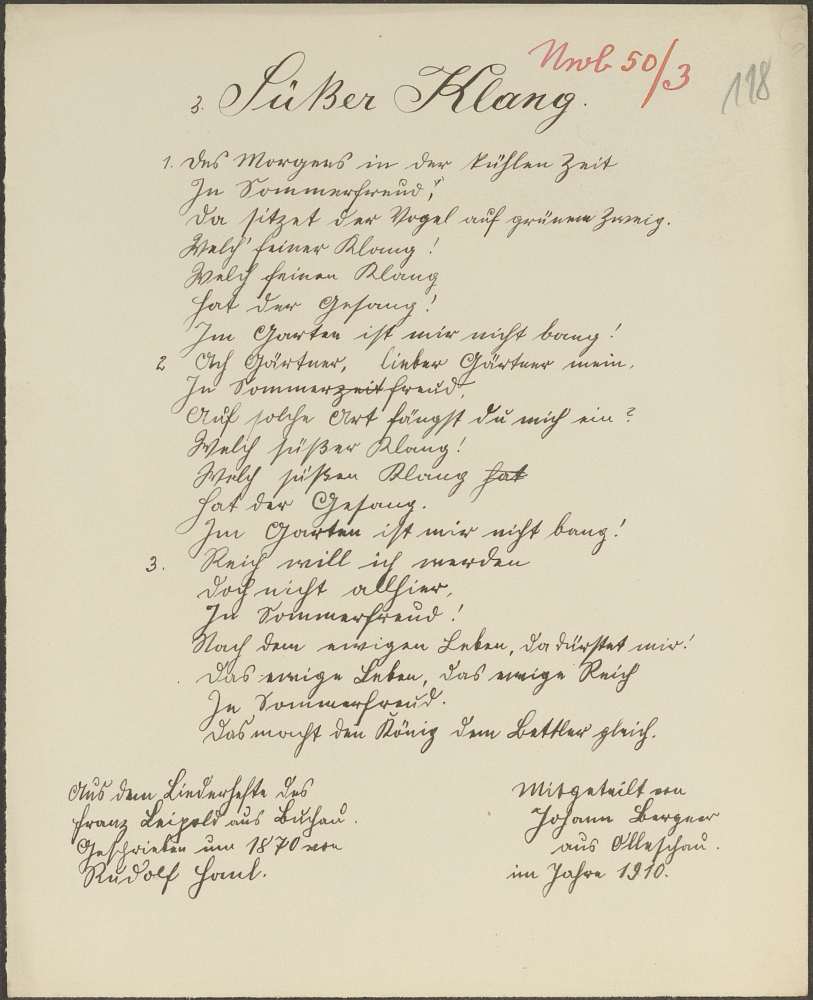 Nwb 50/3
118
3. Süßer Klang.
1. Des Morgens in der kühlen Zeit
In Sommerfreud!
Da sitzet der Vogel auf grünem Zweig.
Welch' feiner Klang!
Welch feinen Klang
hat der Gesang!
Im Garten ist mir nicht bang!
2 Ach Gärtner, lieber Gärtner mein,
In Sommerzeitfreud,
Auf solche Art fängst du mich ein?
Welch süßer Klang!
Welch süßen Klang hat
hat der Gesang.
Im Garten ist mir nicht bang!
3. Reich will ich werden
doch nicht allhier,
In Sommerfreud!
Nach dem ewigen Leben, da dürstet mir!
Das ewige Leben, das ewige Reich
In Sommerfreud.
Das macht den König dem Bettler gleich.
Aus dem Liederhefte des
Franz Leipold aus Buchau.
Geschrieben um 1870 von
Rudolf Hank.
Mitgeteilt von
Johann Bergner
aus Olleschau.
im Jahre 1910.